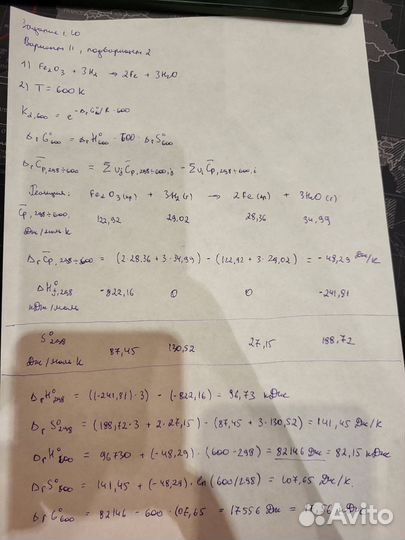 Задание 10
Вариант 11, подвариант 2
1) Fe₂O₃ + 3H₂ → 2Fe + 3H₂O
2) T = 600 K
= e
ΔrG°₆₀₀ = ΔrH°₆₀₀ - 600 · ΔrS°₆₀₀
ΔrC̄p,298÷600 = Σνj C̄p,298÷600,j - Σνi C̄p,298÷600,i
Реакция: Fe₂O₃(кр) + 3H₂(г) → 2Fe(кр) + 3H₂O(г)
C̄p,298÷600, 122,92 29,02 28,36 34,99
Дж/моль·К
ΔrC̄p,298÷600 = (2·28.36 + 3·34,99) - (122,92 + 3·29,02) = -48,29 Дж/К
ΔH°f,298 -822,16 0 0 -241,81
кДж/моль
S°₂₉₈ 87,45 130,52 27,15 188,72
Дж/моль·К
ΔrH°₂₉₈ = ((-241,81)·3) - (-822,16) = 96,73 кДж
ΔrS°₂₉₈ = (188,72·3 + 2·27,15) - (87,45 + 3·130,52) = 141,45 Дж/К
ΔrH°₆₀₀ = 96730 + (-48,29)·(600-298) = 82146 Дж = 82,15 кДж
ΔrS°₆₀₀ = 141,45 + (-48,29)·ln(600/298) = 107,65 Дж/К
ΔrG°₆₀₀ = 82146 - 600·107,65 = 17556 Дж = кДж
Avito